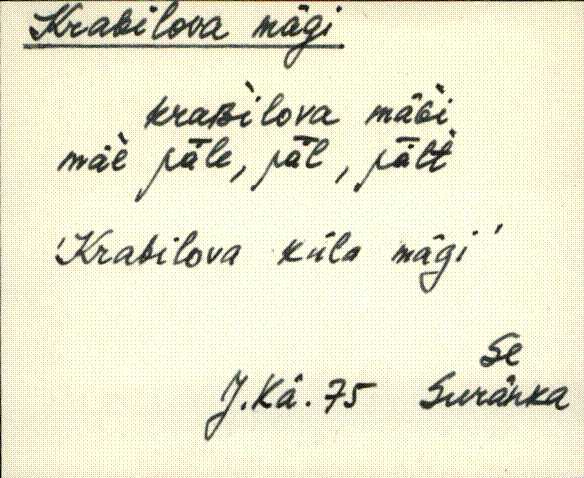 Krabilova mägi
kraʙ̀ilova mäɢ̀i
mäè̬ pǟle, pǟl, pǟlt̀
'Krabilova küla mägi'
Se
J.Kä.75 Suränka